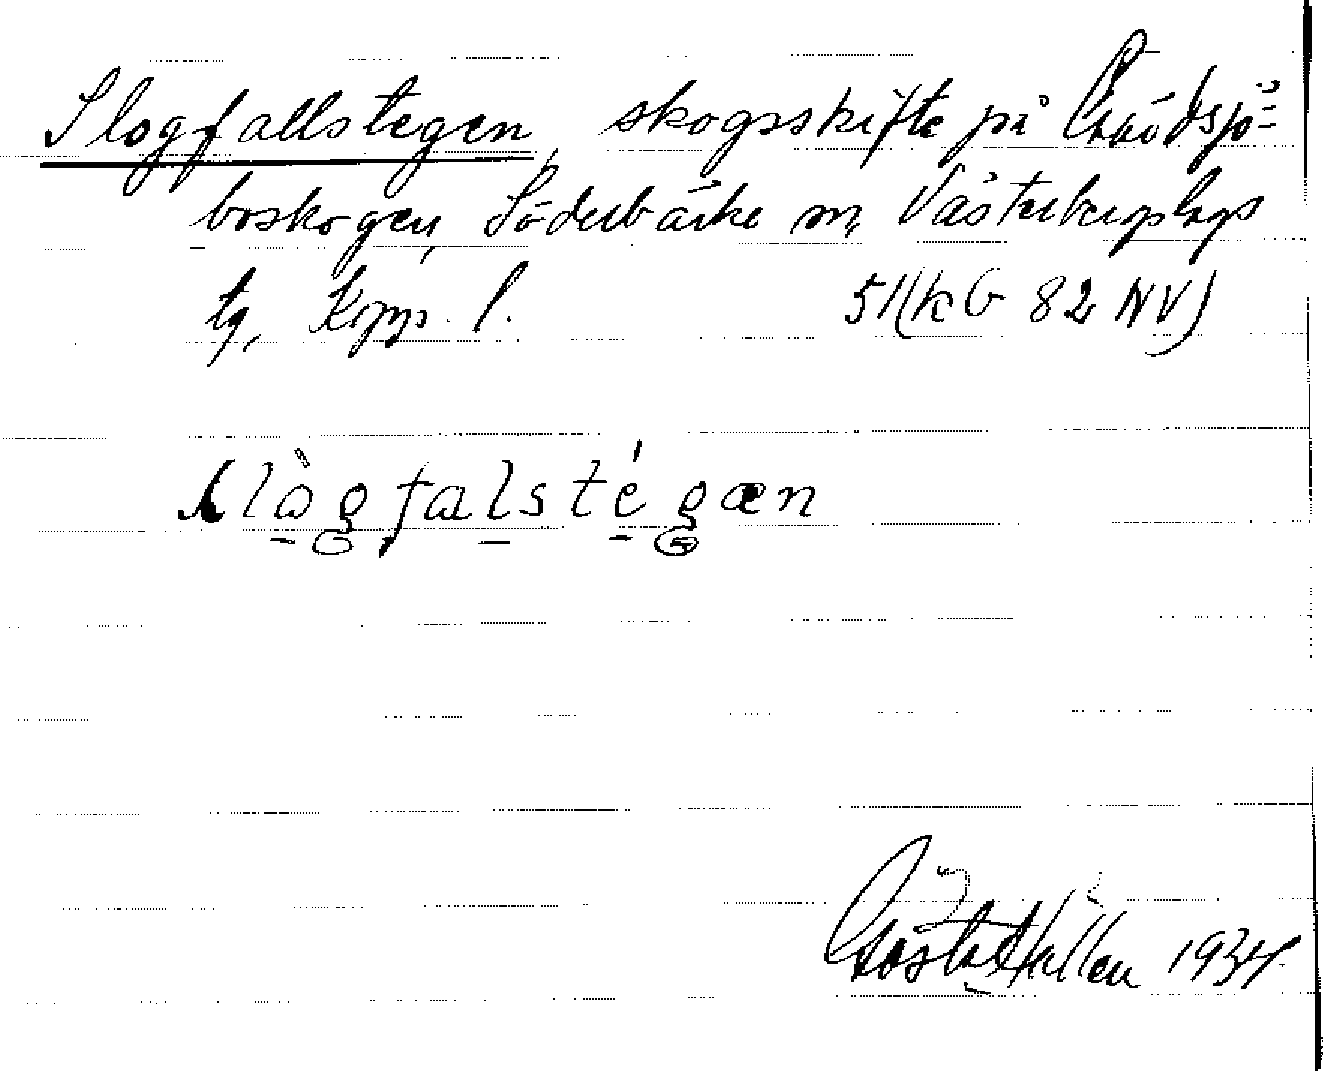 Slogfallstegen, skogsskifte på Snödsjö-
boskogen, Söderbärke sn, Västerbergslags
tg, Kopp. l. 51 (KG 82 NV)
slògfalstégæn
Gösta Hallen 1934.